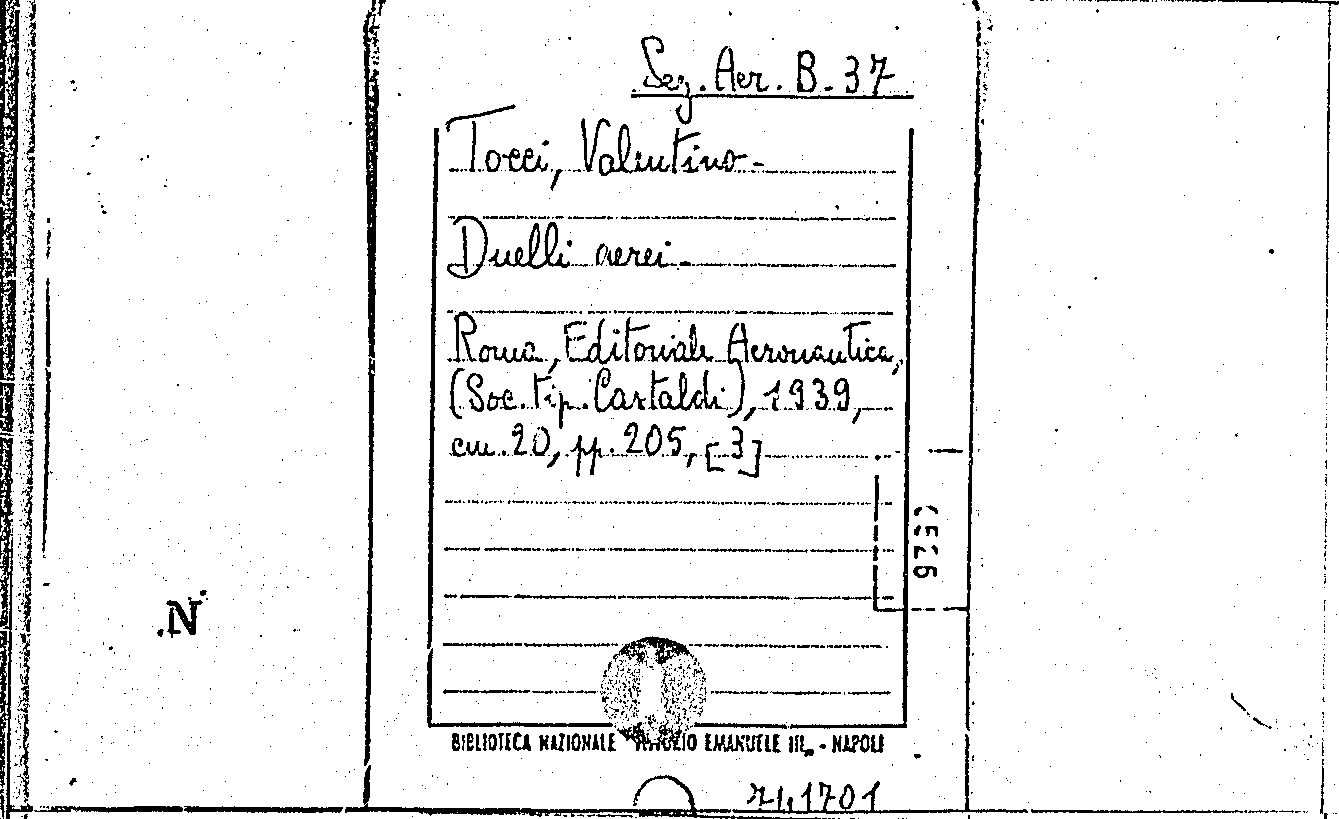 Sez. Aer. B. 37
Tocci, Valentino-
Duelli aerei-
Roma, Editoriale Aeronautica,
(Soc. tip. Castaldi), 1939,
cm. 20, pp. 205, [3]
N
BIBLIOTECA NAZIONALE EMANUELE III - NAPOLI
71,1701